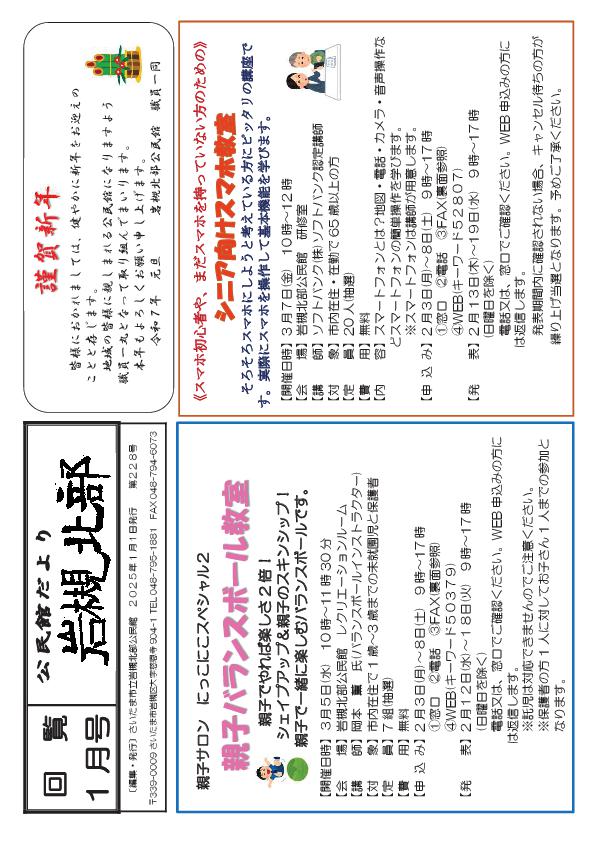 回　覧
１月号
公民館だより
岩槻北部
〔編集・発行〕さいたま市立岩槻北部公民館　２０２５年１月１日発行　第２２８号
〒339-0009 さいたま市岩槻区大字慈恩寺 904-1 TEL048-795-1881　FAX048-794-6073
謹賀新年
皆様におかれましては、健やかに新年をお迎えの
ことと存じます。
地域の皆様に親しまれる公民館になりますよう
職員一丸となって取り組んでまいります。
本年もよろしくお願い申し上げます。
令和７年　元旦　　岩槻北部公民館　職員一同
親子サロン　にっこにこスペシャル２
親子バランスボール教室
親子でやれば楽しさ２倍！
シェイプアップ&親子のスキンシップ！
親子で一緒に楽しむバランスボールです。
【開催日時】３月５日(水)　１０時～１１時３０分
【会　　場】岩槻北部公民館　レクリエーションルーム
【講　　師】岡本　薫　氏(バランスボールインストラクター)
【対　　象】市内在住で１歳～３歳までの未就園児と保護者
【定　　員】７組(抽選)
【費　　用】無料
【申 込 み】２月３日(月)～８日(土)　９時～１７時
①窓口　②電話　③FAX(裏面参照)
④WEB(キーワード５０３７９)
【発　　表】２月１２日(水)～１８日(火)　９時～１７時
(日曜日を除く)
電話又は、窓口でご確認ください。WEB申込みの方に
は返信します。
※託児は対応できませんのでご注意ください。
※保護者の方１人に対してお子さん１人までの参加と
なります。
《スマホ初心者や、まだスマホを持っていない方のための》
シニア向けスマホ教室
そろそろスマホにしようと考えている方にピッタリの講座で
す。実際にスマホを操作して基本機能を学びます。
【開催日時】３月７日(金)　１０時～１２時
【会　　場】岩槻北部公民館　研修室
【講　　師】ソフトバンク(株)ソフトバンク認定講師
【対　　象】市内在住・在勤で６５歳以上の方
【定　　員】２０人(抽選)
【費　　用】無料
【内　　容】スマートフォンとは？地図・電話・カメラ・音声操作な
どスマートフォンの簡単操作を学びます。
※スマートフォンは講師が用意します。
【申 込 み】２月３日(月)～８日(土)　９時～１７時
①窓口　②電話　③FAX(裏面参照)
④WEB(キーワード５２８０７)
【発　　表】２月１３日(木)～１９日(水)　９時～１７時
(日曜日を除く)
電話又は、窓口でご確認ください。WEB申込みの方に
は返信します。
発表期間内に確認されない場合、キャンセル待ちの方が
繰り上げ当選となります。予めご了承ください。